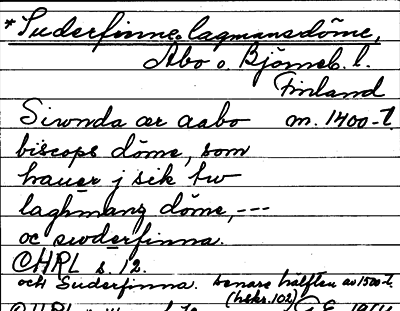 *Suderfinne lagmansdöme,
Åbo o. Björneb. l.
Finland
Siwnda ær aabo m. 1400-t.
biscops döme, som
hauer j sik tw
laghmanz döme,---
oc swderfinna.
CHRL s. 12.
och Suderfinna. senare hälften av 1500-t.
(hskr. 102)
CHRL